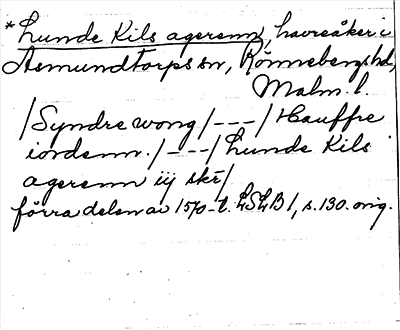 *Lunde Kils agerenn, havreåker i
Asmundtorps sn, Rönnebergs hd,
Malm. l.
/Syndre wong/---/Hauffre
iordenn./---/Lunde Kils
agerenn iij skr/
förra delen av 1570-t. LSLB 1, s. 130. orig.